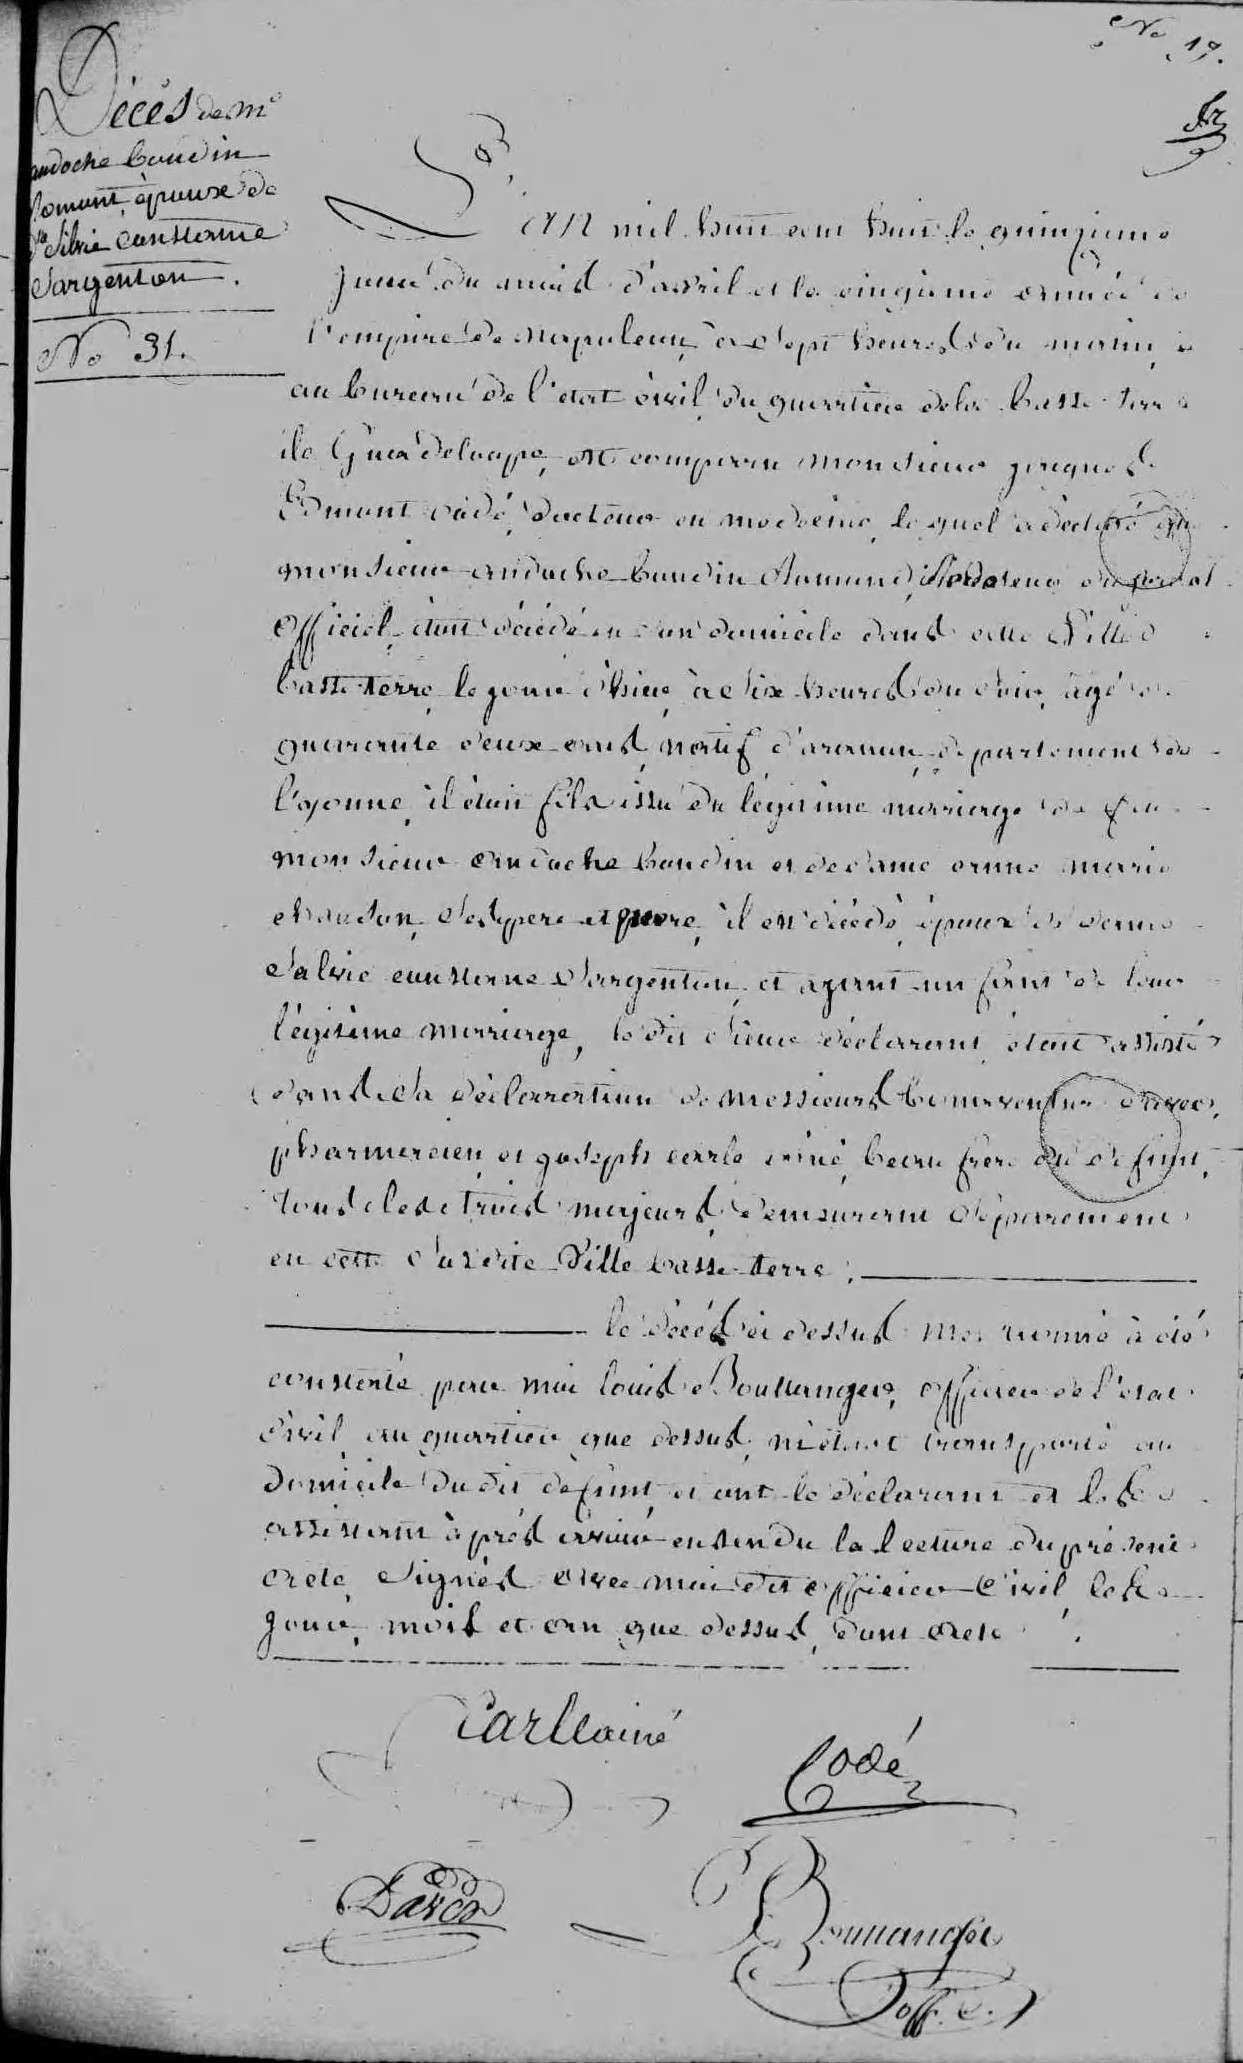 No 19.
Décès de mr
andoche baudin
aumont, époux de
silvie caustanne
dargenton.
No 31.
L'an mil huit cent huit le quinzieme
jour du mois d'avril et la cinqieme année de
l'empire de napoleon, à sept heures du matin,
au bureau de l'etat civil du quartier de la basse terre
ile Guadeloupe, est comparu monsieur jacques
Edmont codé, docteur en medecine, lequel a déclaré que
monsieur andoche baudin Aumund, du journal
Officiel, était décédé en son domicile dans cette Ville
basse-terre, le jour d'hier à six heures du soir, âgé de
quarante deux ans, natif d'aranun, département de
l'yonne, il était fils issu du légitime mariage de feu
monsieur andoche baudin et de dame anne marie
chauson, ses pere et mere, il est décédé époux de dame
salvie caustanne dargenton, et ayant un fruit de leur
légitime mariage, le dit sieur déclarant, était assisté
dans sa déclaration de messieurs bonaventure davés,
pharmacien, et joseph carle ainé, beau frère du défunt,
tous les trois majeurs, demeurant séparément
en cette susdite Ville basse-terre.
le décès ci dessus mentionné à été
constaté par moi louis Boullanger, officier de l'etat
Civil, au quartier que dessus, m'étant transporté au
domicile du dit défunt, et ont le déclarant et les
assistants après avoir entendu la lecture du présent
acte, signés avec moi dit officier Civil, les
jour, mois et an que dessus, dont acte.
Carle ainé
Codé
Davés
Boullanger
off. C.